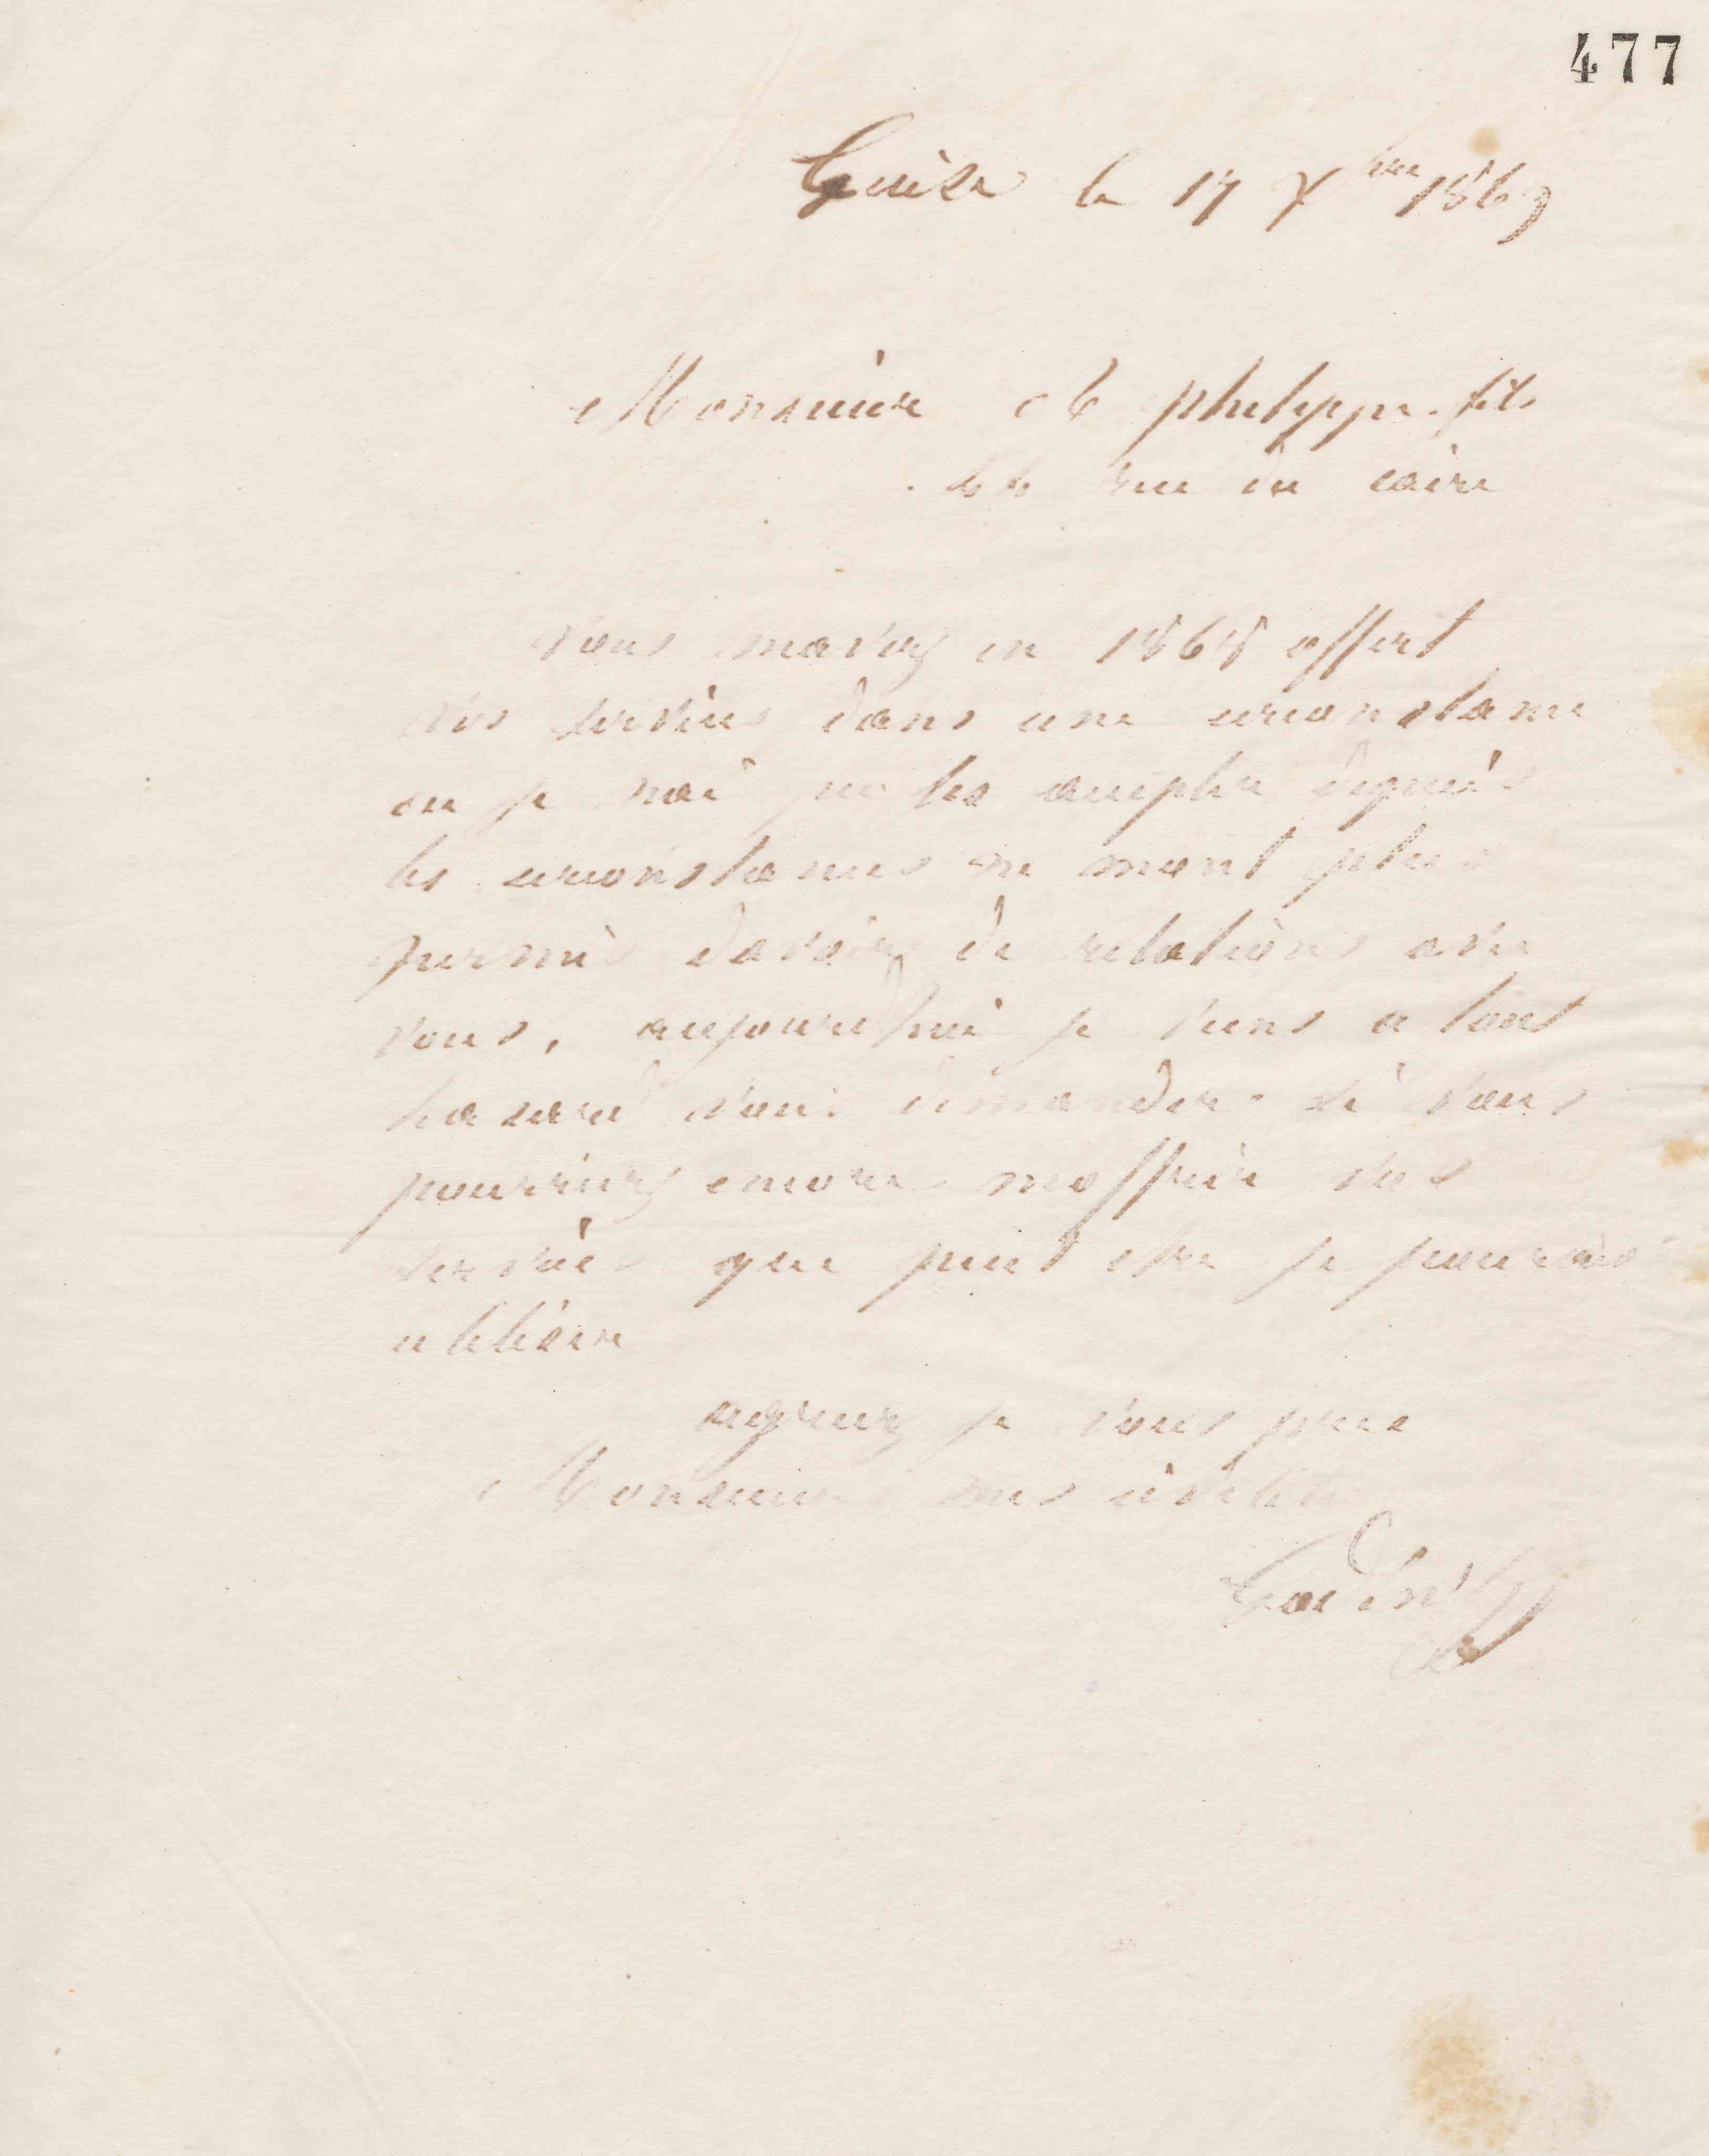 477
Guise le 17 Xbre 1869
Monsieur Ch philippe fils
66 rue du caire
vous mavez en 1868 offert
vos services dans une circonstance
ou je nai pu les accepter depuis
les circonstances ne mont plus
permis davoir de relations avec
vous, aujourdhui je viens a tout
hasard vous demander si vous
pourriez encore moffrir des
services que peut etre je pourrais
utiliser
agreez je vous prie
Monsieur mes civilités
Godin